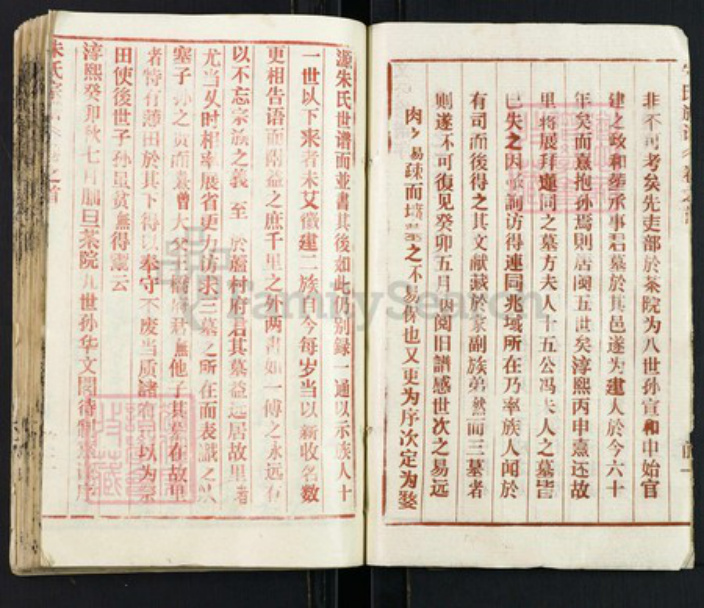 非不可考矣先吏部於茶院为八世孙宣和中始官
建之政和塟承事君墓於其邑遂为建人於今六十
年矣而熹抱孙焉则居闽五世矣淳熙丙申熹还故
里将展拜连同之墓方夫人十五公冯夫人之墓皆
已失之因詢访得连同兆域所在乃率族人闻於
有司而後得之其文献藏於家副族弟然而三墓者
则遂不可復见癸卯五月因阅旧譜感世次之易远
肉之易疎而坟墓之不易保也又更为序次定为婺
源朱氏世谱而並書其後如此仍别録一通以示族人十
一世以下来者未艾徽建二族自今每岁当以新收名数
更相告语而附益之庶千里之外两書如一傅之永远有
以不忘宗族之义至於墓益远居故里者
尤当以时相率展省更力访求三墓之所在而表識之以
塞子孙之责而熹曾大父無他子其墓在故里
者恃有薄田於其下得以奉守不废当质諸有以为祭
田使後世子孙虽贫無得云
淳熙癸卯秋七月旦茶院九世孙华文閣待制熹序
朱氏之首
FamilySearch